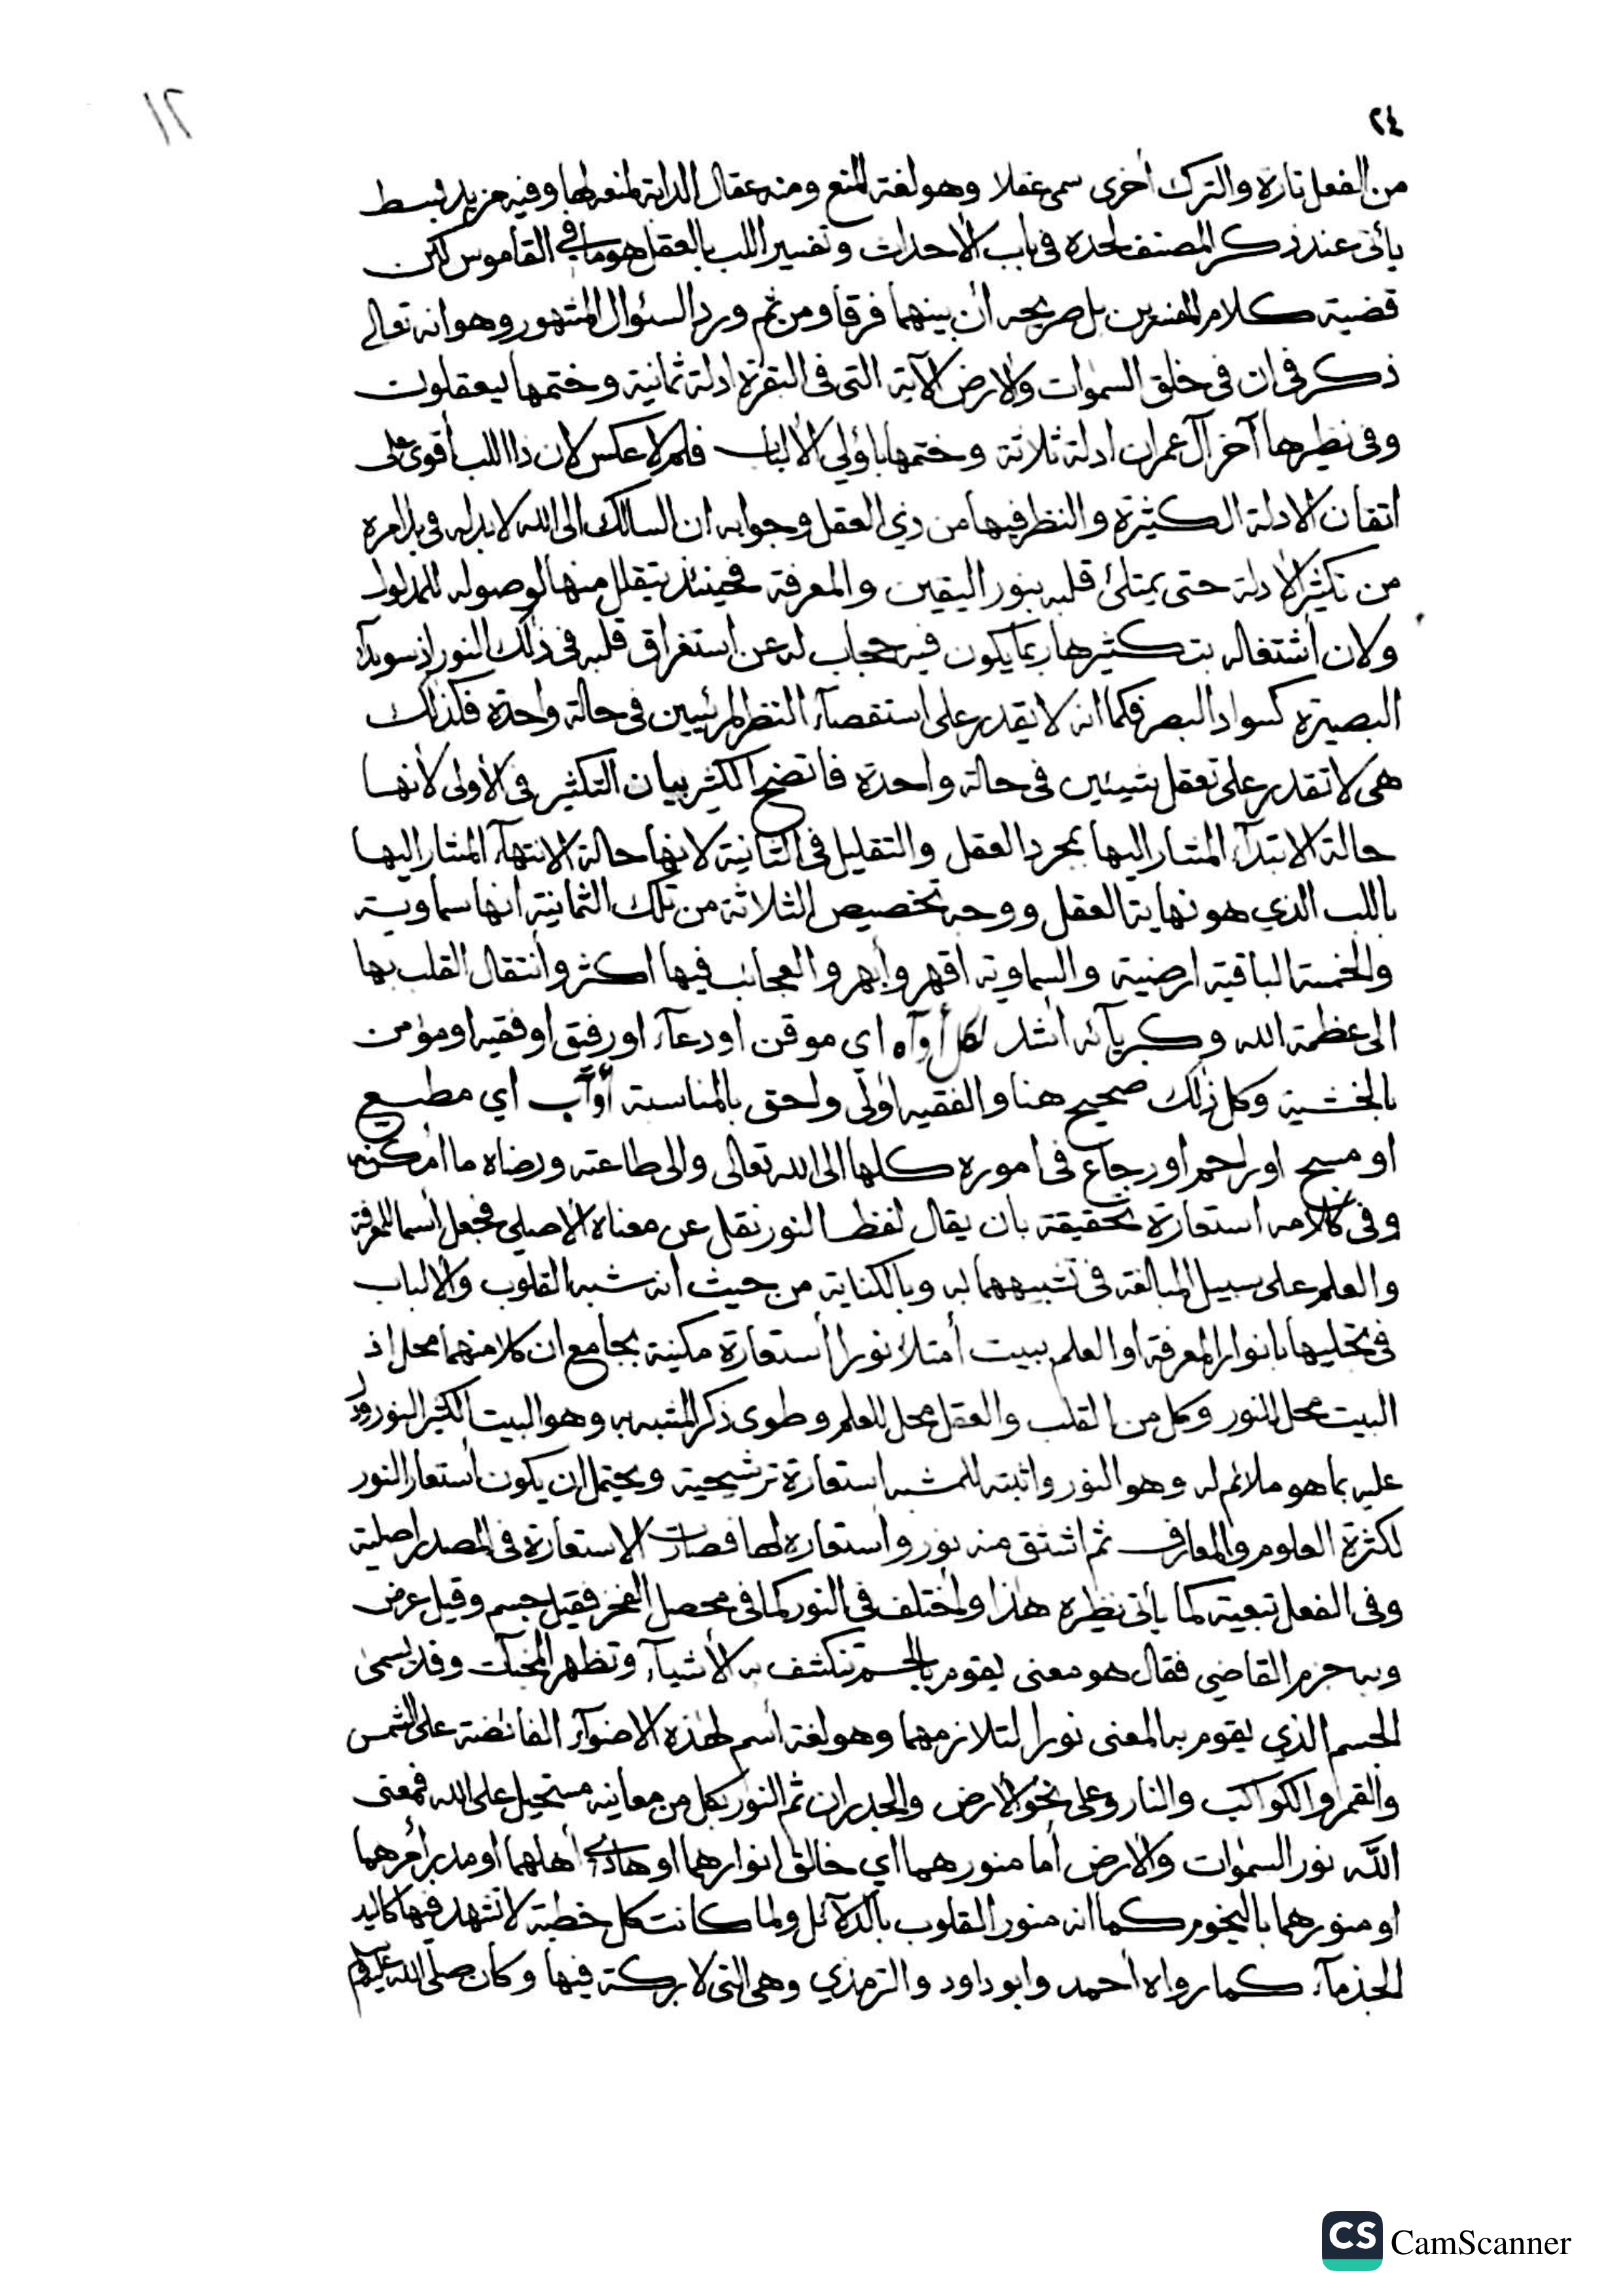 ١٢
٢٤
من الفعل تارة والترك أخرى سمى عقلا وهو لغة المنع ومنه عقال الدابة لمنعه لها وفيه مزيد بسط
يأتى عند ذكر المصنف لحده فى باب الأحداث وتفسير اللب بالعقل هو ما في القاموس لكن
قضية كلام المفسرين بل صريحه أن بينهما فرقا ومن ثم ورد السئوال المشهور وهو انه تعالى
ذكر فى ان فى خلق السموات والارض الآية التى فى البقرة ادلة ثمانية وختمها بيعقلون
وفى نظيرها آخر آل عمران ادلة ثلاثة وختمها باؤلي الألباب فلم لا عكس لان ذا اللب أقوى على
اتقان الادلة الكثيرة والنظر فيها من ذي العقل وجوابه ان السالك الى الله لا بد له فى بدا مره
من تكثير الأدلة حتى يمتلئ قلبه بنور اليقين والمعرفة فحينئذ يتقلل منها لوصوله للمدلول
ولان أشتغاله بتكثيرها ربما يكون فيه حجاب له عن استغراق قلبه فى ذلك النور اذ سويدآء
البصيرة كسواد البصر فكما انه لا يقدر على استقصآء النظر لمرئيين فى حالة واحدة فكذلك
هى لا تقدر على تعقل شيئين فى حالة واحدة فاتضح الكثير بيان التكثير فى الأولى لأنها
حالة الابتدآء المشار اليها بمجرد العقل والتقليل فى الثانية لانها حالة الانتهآء المشار اليها
باللب الذي هو نهاية العقل ووجه تخصيص الثلاثة من تلك الثمانية انها سماوية
والخمسة الباقية ارضية والسماوية اقهر وأبهر والعجائب فيها اكثر وأنتقال القلب بها
الى عظمة الله وكبريآئه اشد لكل أوآه اي موقن او دعآء او رفيق او فقيه او مؤمن
بالخشية وكل ذلك صحيح هنا والفقيه اولى واحق بالمناسبة أوآب اي مطيع
او مسبح او راحم او رجاع فى اموره كلها الى الله تعالى والى طاعته ورضاه ما امكنه
وفى كلامه استعارة تحقيقة بان يقال لفظ النور نقل عن معناه الأصلى فجعل أسما للمعرفة
والعلم على سبيل المبالغة فى تشبيههما به وبالكناية من حيث انه شبه القلوب والالباب
فى تحليها بانوار المعرفة او العلم ببيت أمتلأ نورا أستعارة مكنية بجامع ان كلا منهما محل اذ
البيت محل للنور وكل من القلب والعقل محل للعلم وطوى ذكر المشبه به وهو البيت الكثير النور ودل
عليه بما هو ملائم له وهو النور واثبته للمشبه استعارة ترشيحية ويحتمل ان يكون أستعار النور
لكثرة العلوم والمعارف ثم اشتق منه نور واستعاره لها فصارت الاستعارة فى المصدر اصلية
وفى الفعل تبعية كما يأتى نظيره هذا واختلف فى النور كما فى محصل الفخر فقيل جسم وقيل عرض
وبه جزم القاضي فقال هو معنى يقوم بالجسم تنكشف به الأشيآء وتظهر المخبآت وقد يسمى
الجسم الذي يقوم به المعنى نورا لتلازمهما وهو لغة أسم لهذه الاضوآء الفائضة على الشمس
والقمر والكواكب والنار وعلى نحو الارض والجدران ثم النور بكل من معانيه مستحيل على الله فمعنى
الله نور السموات والارض أما منورهما اي خالق انوارهما او هادي أهلهما او مدبر أمرهما
او منورهما بالنجوم كما انه منور القلوب بالدلآئل ولما كانت كل خطبة لا تشهد فيها كاليد
الجذمآء كما رواه أحمد وابو داود والترمذي وهى التى لا بركة فيها وكان صلى الله عليه وسلم
CS CamScanner